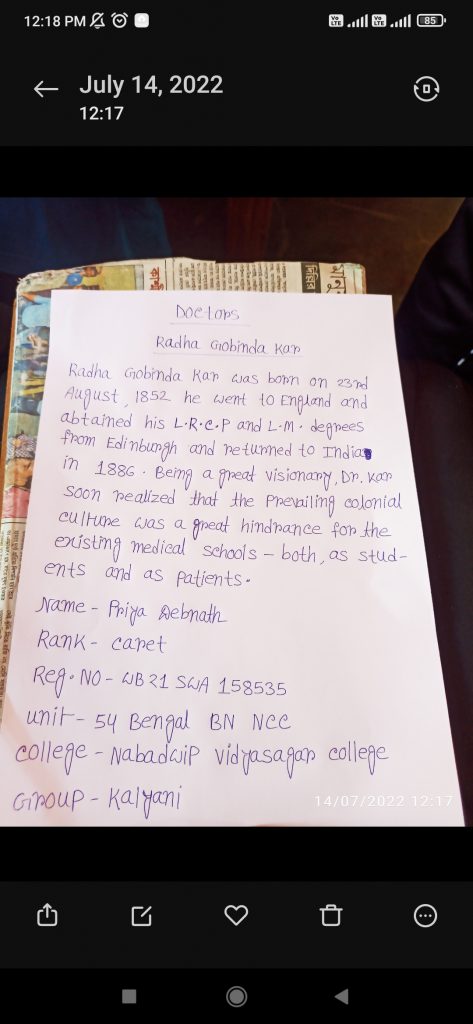 12:18 PM
Vo LTE Vo LTE 85
July 14, 2022
12:17
Doctors
Radha Giobinda Kar
Radha Giobinda Kar was born on 23rd
August, 1852 he went to England and
abtained his L.R.C.P and L.M. degrees
from Edinburgh and returned to India
in 1886. Being a great visionary, Dr. Kar
Soon realized that the Prevailing colonial
culture was a great hindrance for the
existing medical schools - both, as stud-
ents and as Patients.
Name - Priya Debnath
Rank - caret
Reg. NO - WB 21 SWA 158535
unit - 54 Bengal BN NCC
college - Nabadwip vidyasagar college
Giroup - Kalyani
14/07/2022 12:17